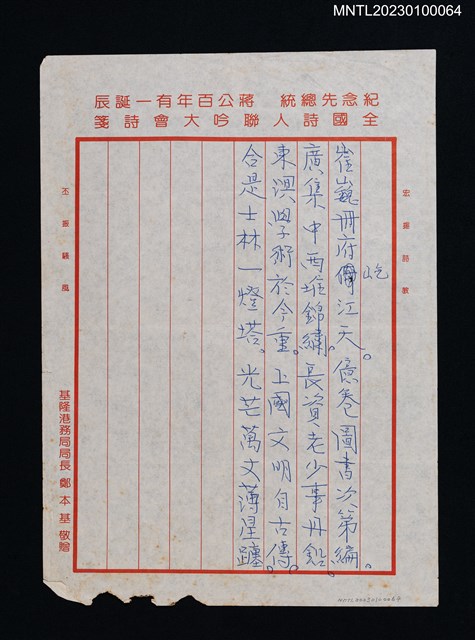 MNTL20230100064
紀念先總統 蔣公百年有一誕辰
全國詩人聯吟大會詩箋
宏揚詩教
崔巍冊府屹江天。億卷圖書次第編。
廣集中西堆錦繡。長資老少事丹鉛。
東漢學術於今重。上國文明自古傳。
合是士林一燈塔。光芒萬丈薄星躔。
丕振騷風
基隆港務局局長 鄭本基 敬贈
MNTL20230100064